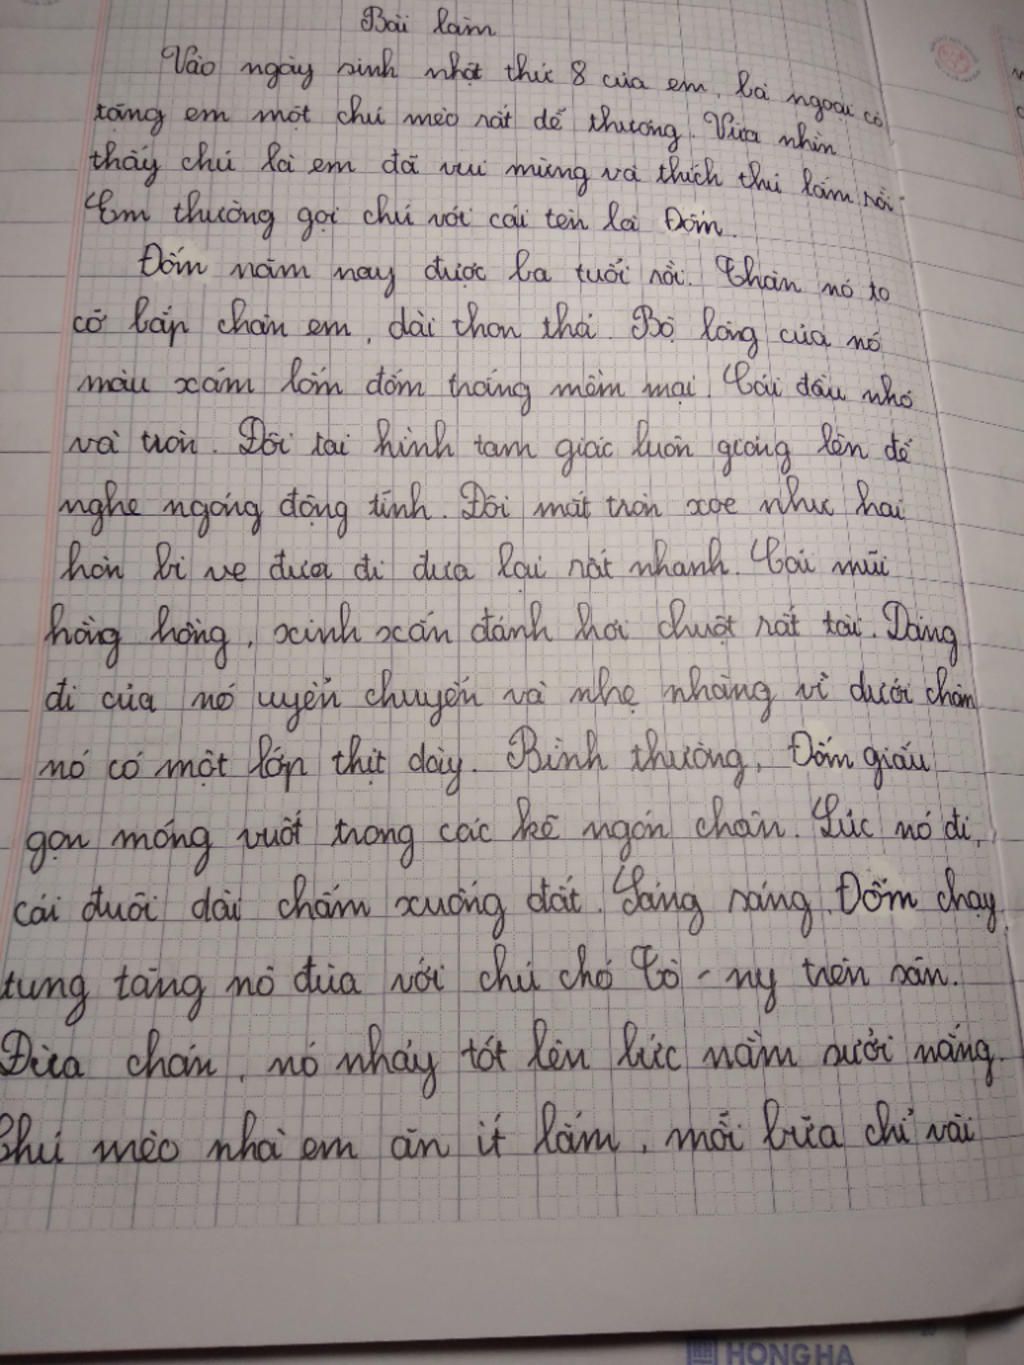 Bài làm
Vào ngày sinh nhật thứ 8 của em, bà ngoại có
tặng em một chú mèo rất dễ thương. Vừa nhìn
thấy chú là em đã vui mừng và thích thú lắm rồi
Em thường gọi chú với cái tên là Đốm.
Đốm năm nay được ba tuổi rồi. Thân nó to
cỡ bắp chân em, dài thon thả. Bộ lông của nó
màu xám lốm đốm trắng mềm mại. Cái đầu nhỏ
và tròn. Đôi tai hình tam giác luôn giương lên để
nghe ngóng động tĩnh. Đôi mắt tròn xoe như hai
hòn bi ve đưa đi đưa lại rất nhanh. Cái mũi
hồng hồng, xinh xắn đánh hơi chuột rất tài. Dáng
đi của nó uyển chuyển và nhẹ nhàng vì dưới chân
nó có một lớp thịt dày. Bình thường, Đốm giấu
gọn móng vuốt trong các kẽ ngón chân. Lúc nó đi,
cái đuôi dài chấm xuống đất. Sáng sáng, Đốm chạy
tung tăng nô đùa với chú chó Tô - ny trên sân.
Đùa chán, nó nhảy tót lên bức nằm sưởi nắng.
Chú mèo nhà em ăn ít lắm, mỗi bữa chỉ vài
HONG HA